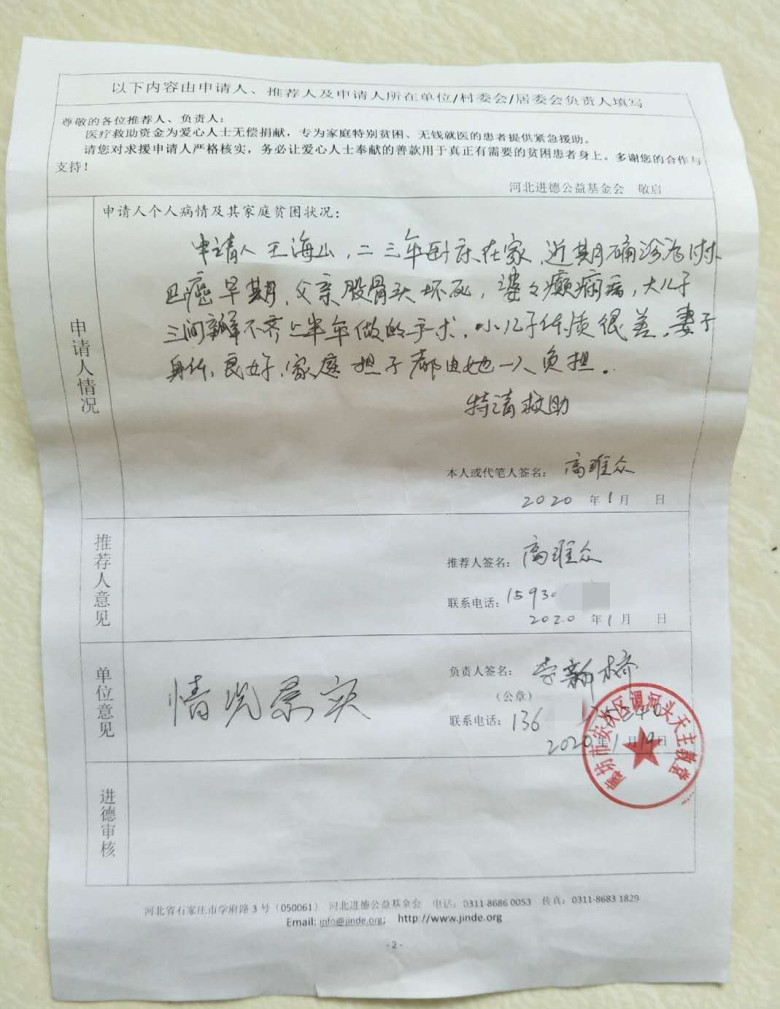 以下内容由申请人、推荐人及申请人所在单位/村委会/居委会负责人填写
尊敬的各位推荐人、负责人：
医疗救助资金为爱心人士无偿捐献，专为家庭特别贫困、无钱就医的患者提供紧急援助。
请您对求援申请人严格核实，务必让爱心人士奉献的善款用于真正有需要的贫困患者身上。多谢您的合作与
支持！
河北进德公益基金会 敬启
申请人情况
申请人个人病情及其家庭贫困状况：
申请人王海山，二三年卧床在家，近期确诊为
癌早期，父亲股骨头坏死，婆婆癫痫病，大儿子
三间瓣不齐上半年做的手术，小儿子体质很差，妻子
身体良好，家庭担子都由她一人负担。
特请救助
本人或代笔人签名：高维众
2020年1月 日
推荐人意见
推荐人签名：高维众
联系电话：15930
2020年1月 日
单位意见
情况属实
负责人签名：李新桥
（公章）
联系电话：136
2020年1月19日
廊坊市安次区调河头天主教堂
进德审核
河北省石家庄市学府路3号（050061） 河北进德公益基金会 电话：0311-8686 0053 传真：0311-8683 1829
Email: info@jinde.org; http://www.jinde.org
- 2 -